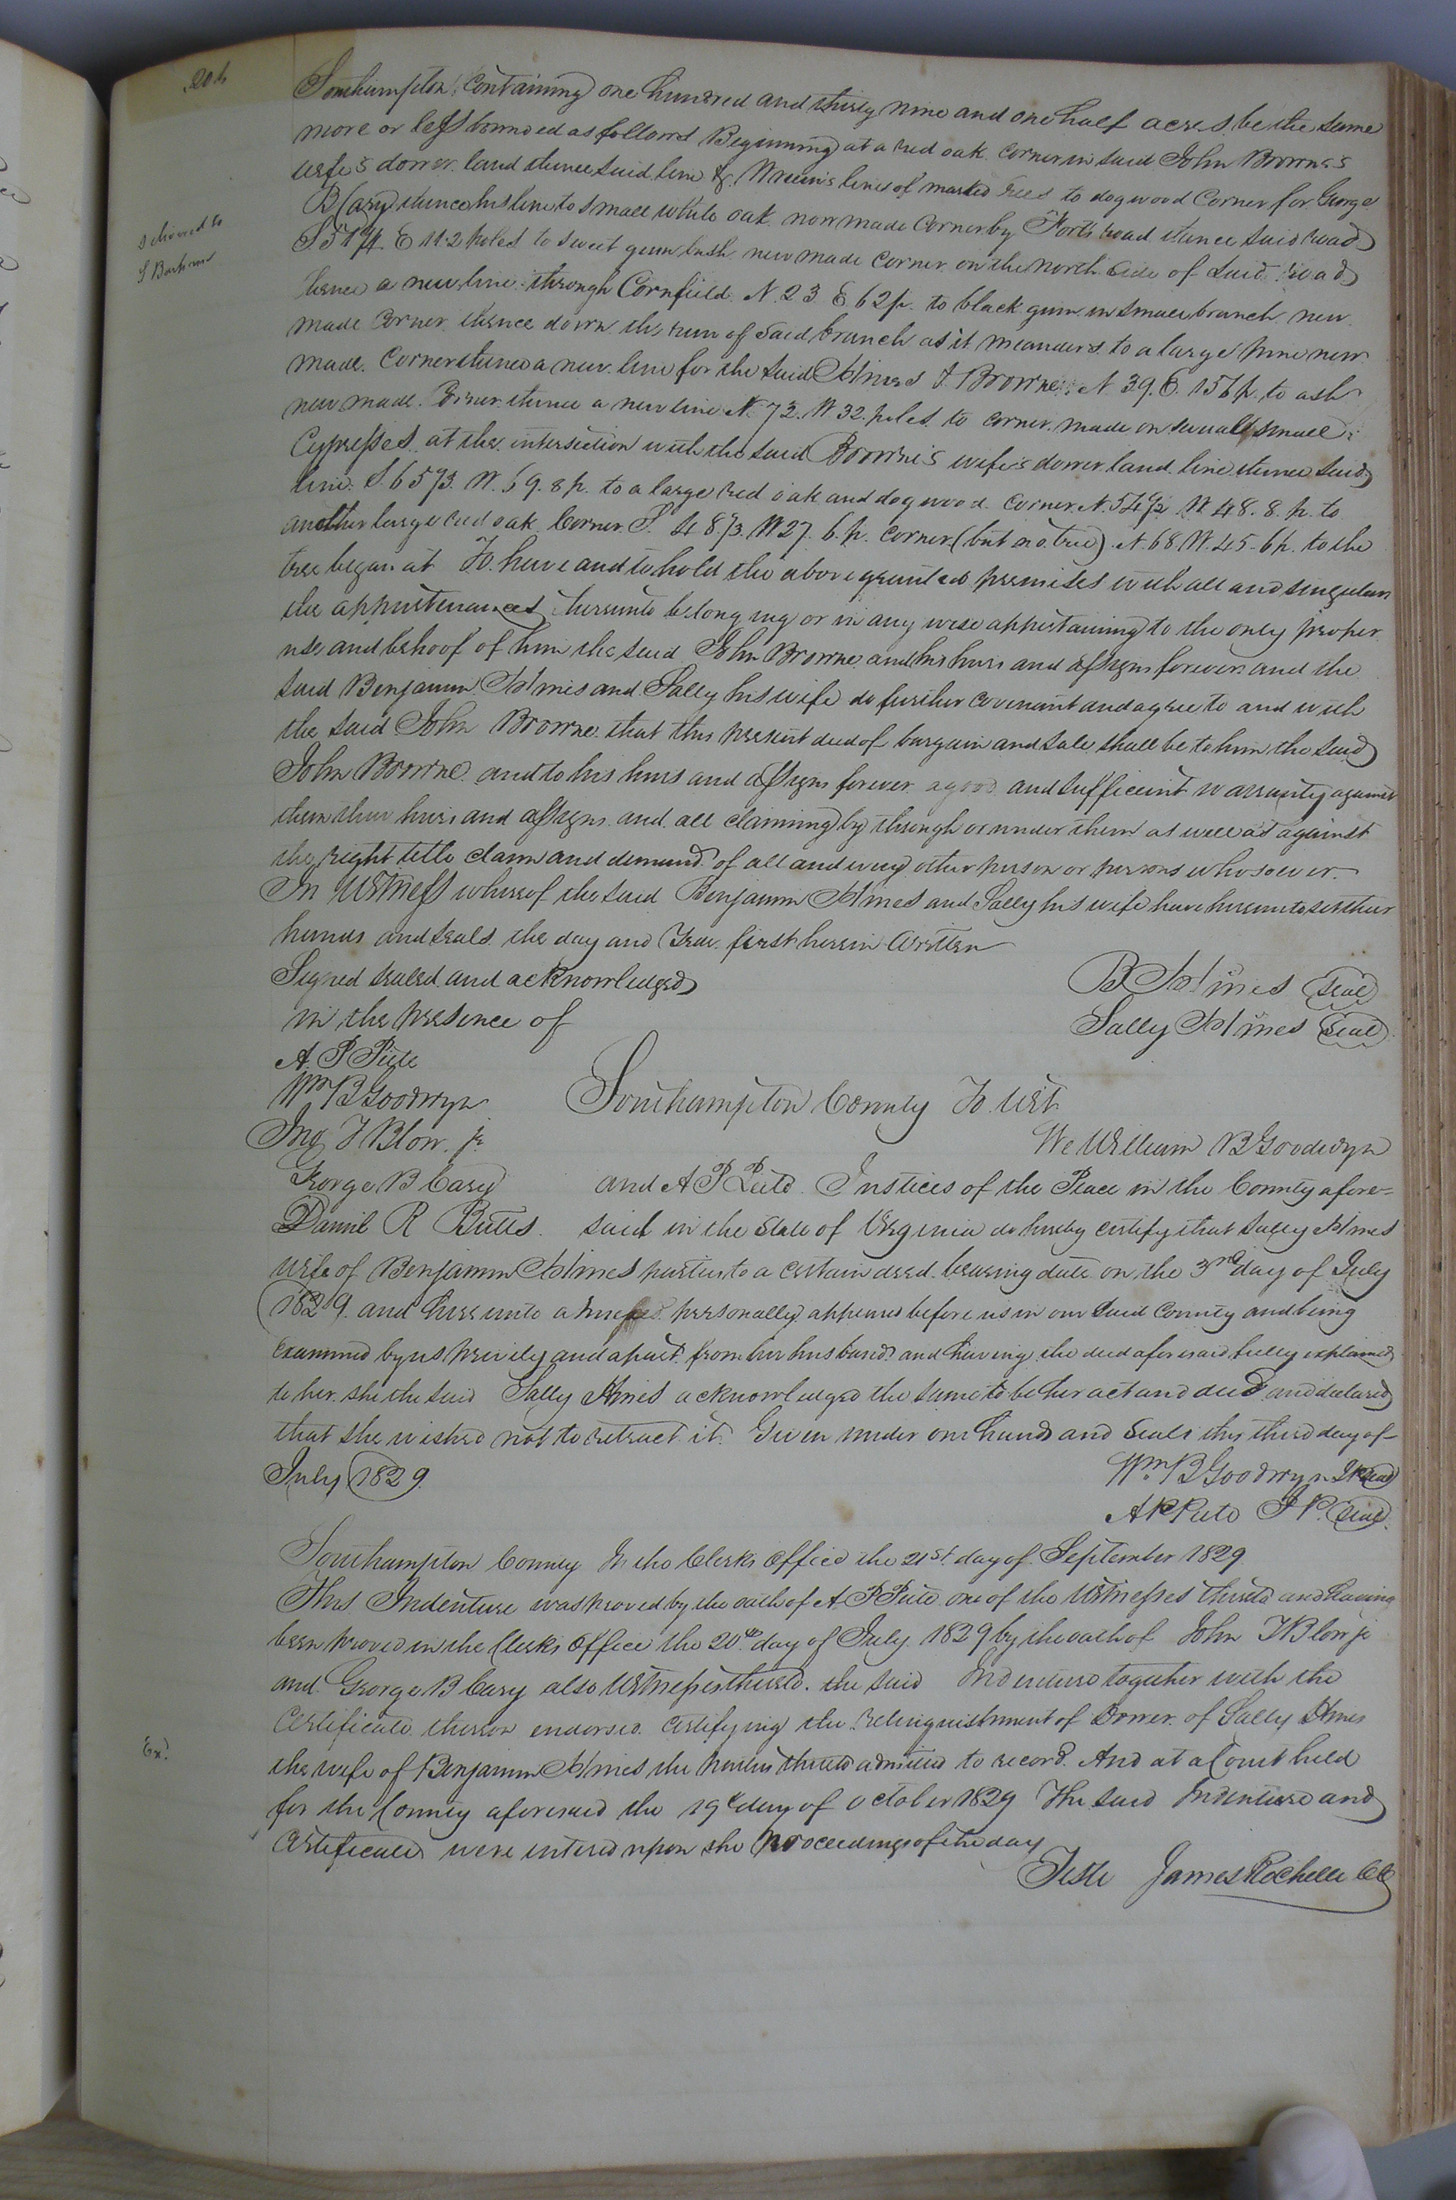 206
Southampton containing one hundred and thirty nine and one half acres be the same
more or less bounded as followd Beginning at a red oak corner in said John Browne's
wife's dower land thence said line & line of marked trees to dogwood Corner for George
B Cary thence his line to small white oak now made corner by Forts road thence said road
Delivered to
S 51 E 112 poles to sweet gum bush new made corner on the north side of said road
thence a new line through Cornfield N. 23 E. 62 p. to black gum in small branch new
made corner thence down the run of said branch as it meanders to a large pine new
made Corner thence a new line for the said Holmes & Browne N. 39. E. 156 p. to ash
new made Corner thence a new line N. 72. W 32. poles to corner made on several small
Cypresses at the intersection with the said Browne's wife's dower land line thence said
line S. 65 W. 59. 8 p. to a large red oak and dogwood corner N. 54½ W. 48. 8. p. to
another large red oak Corner S. 48 W 27. 6. p. corner (but no tree) N. 68 W. 45. 6 p. to the
tree began at To have and to hold the above granted premises with all and singular
the appurtenances thereunto belonging or in any wise appertaining to the only proper
use and behoof of him the said John Browne and his heirs and assigns forever and the
said Benjamin Holmes and Sally his wife do further covenant and agree to and with
the said John Browne that this present deed of bargain and sale shall be to him the said
John Browne and to his heirs and assigns forever a good and sufficient warranty against
them their heirs and assigns and all claiming by through or under them as well as against
the right title claim and demand of all and every other person or persons whosoever
In Witness whereof the said Benjamin Holmes and Sally his wife have hereunto set their
hands and seals the day and Year first herein Written
Signed sealed and acknowledged
in the presence of
B Holmes Seal
Sally Holmes Seal
A. P Peete
Wm B Goodwyn
Jno T Blow jr
George B Cary
Daniel R Butts
Southampton County To Wit
We William B Goodwyn
and A P Peete Justices of the Peace in the County afore-
said in the State of Virginia do hereby certify that Sally Holmes
wife of Benjamin Holmes parties to a certain deed bearing date on the 3rd day of July
1829 and hereunto annexed personally appeared before us in our said County and being
examined by us privily and apart from her husband and having the deed aforesaid fully explained
to her she the said Sally Holmes acknowledged the same to be her act and deed and declared
that she wished not to retract it. Given under our hands and Seals this third day of
July 1829.
Wm B Goodwyn JP Seal
A P Peete J P. Seal
Southampton County In the Clerks Office the 21st day of September 1829
This Indenture was proved by the oath of A. P Peete one of the Witnesses thereto and having
been proved in the Clerks Office the 20th day of July 1829 by the oath of John T Blow jr
and George B Cary also Witnesses thereto. the said Indenture together with the
certificate thereon endorsed certifying the relinquishment of Dower of Sally Holmes
Exd
the wife of Benjamin Holmes the parties thereto admitted to record. And at a Court held
for the County aforesaid the 19th day of October 1829 The said Indenture and
certificate were entered upon the proceedings of the day
Teste James Rochelle CC